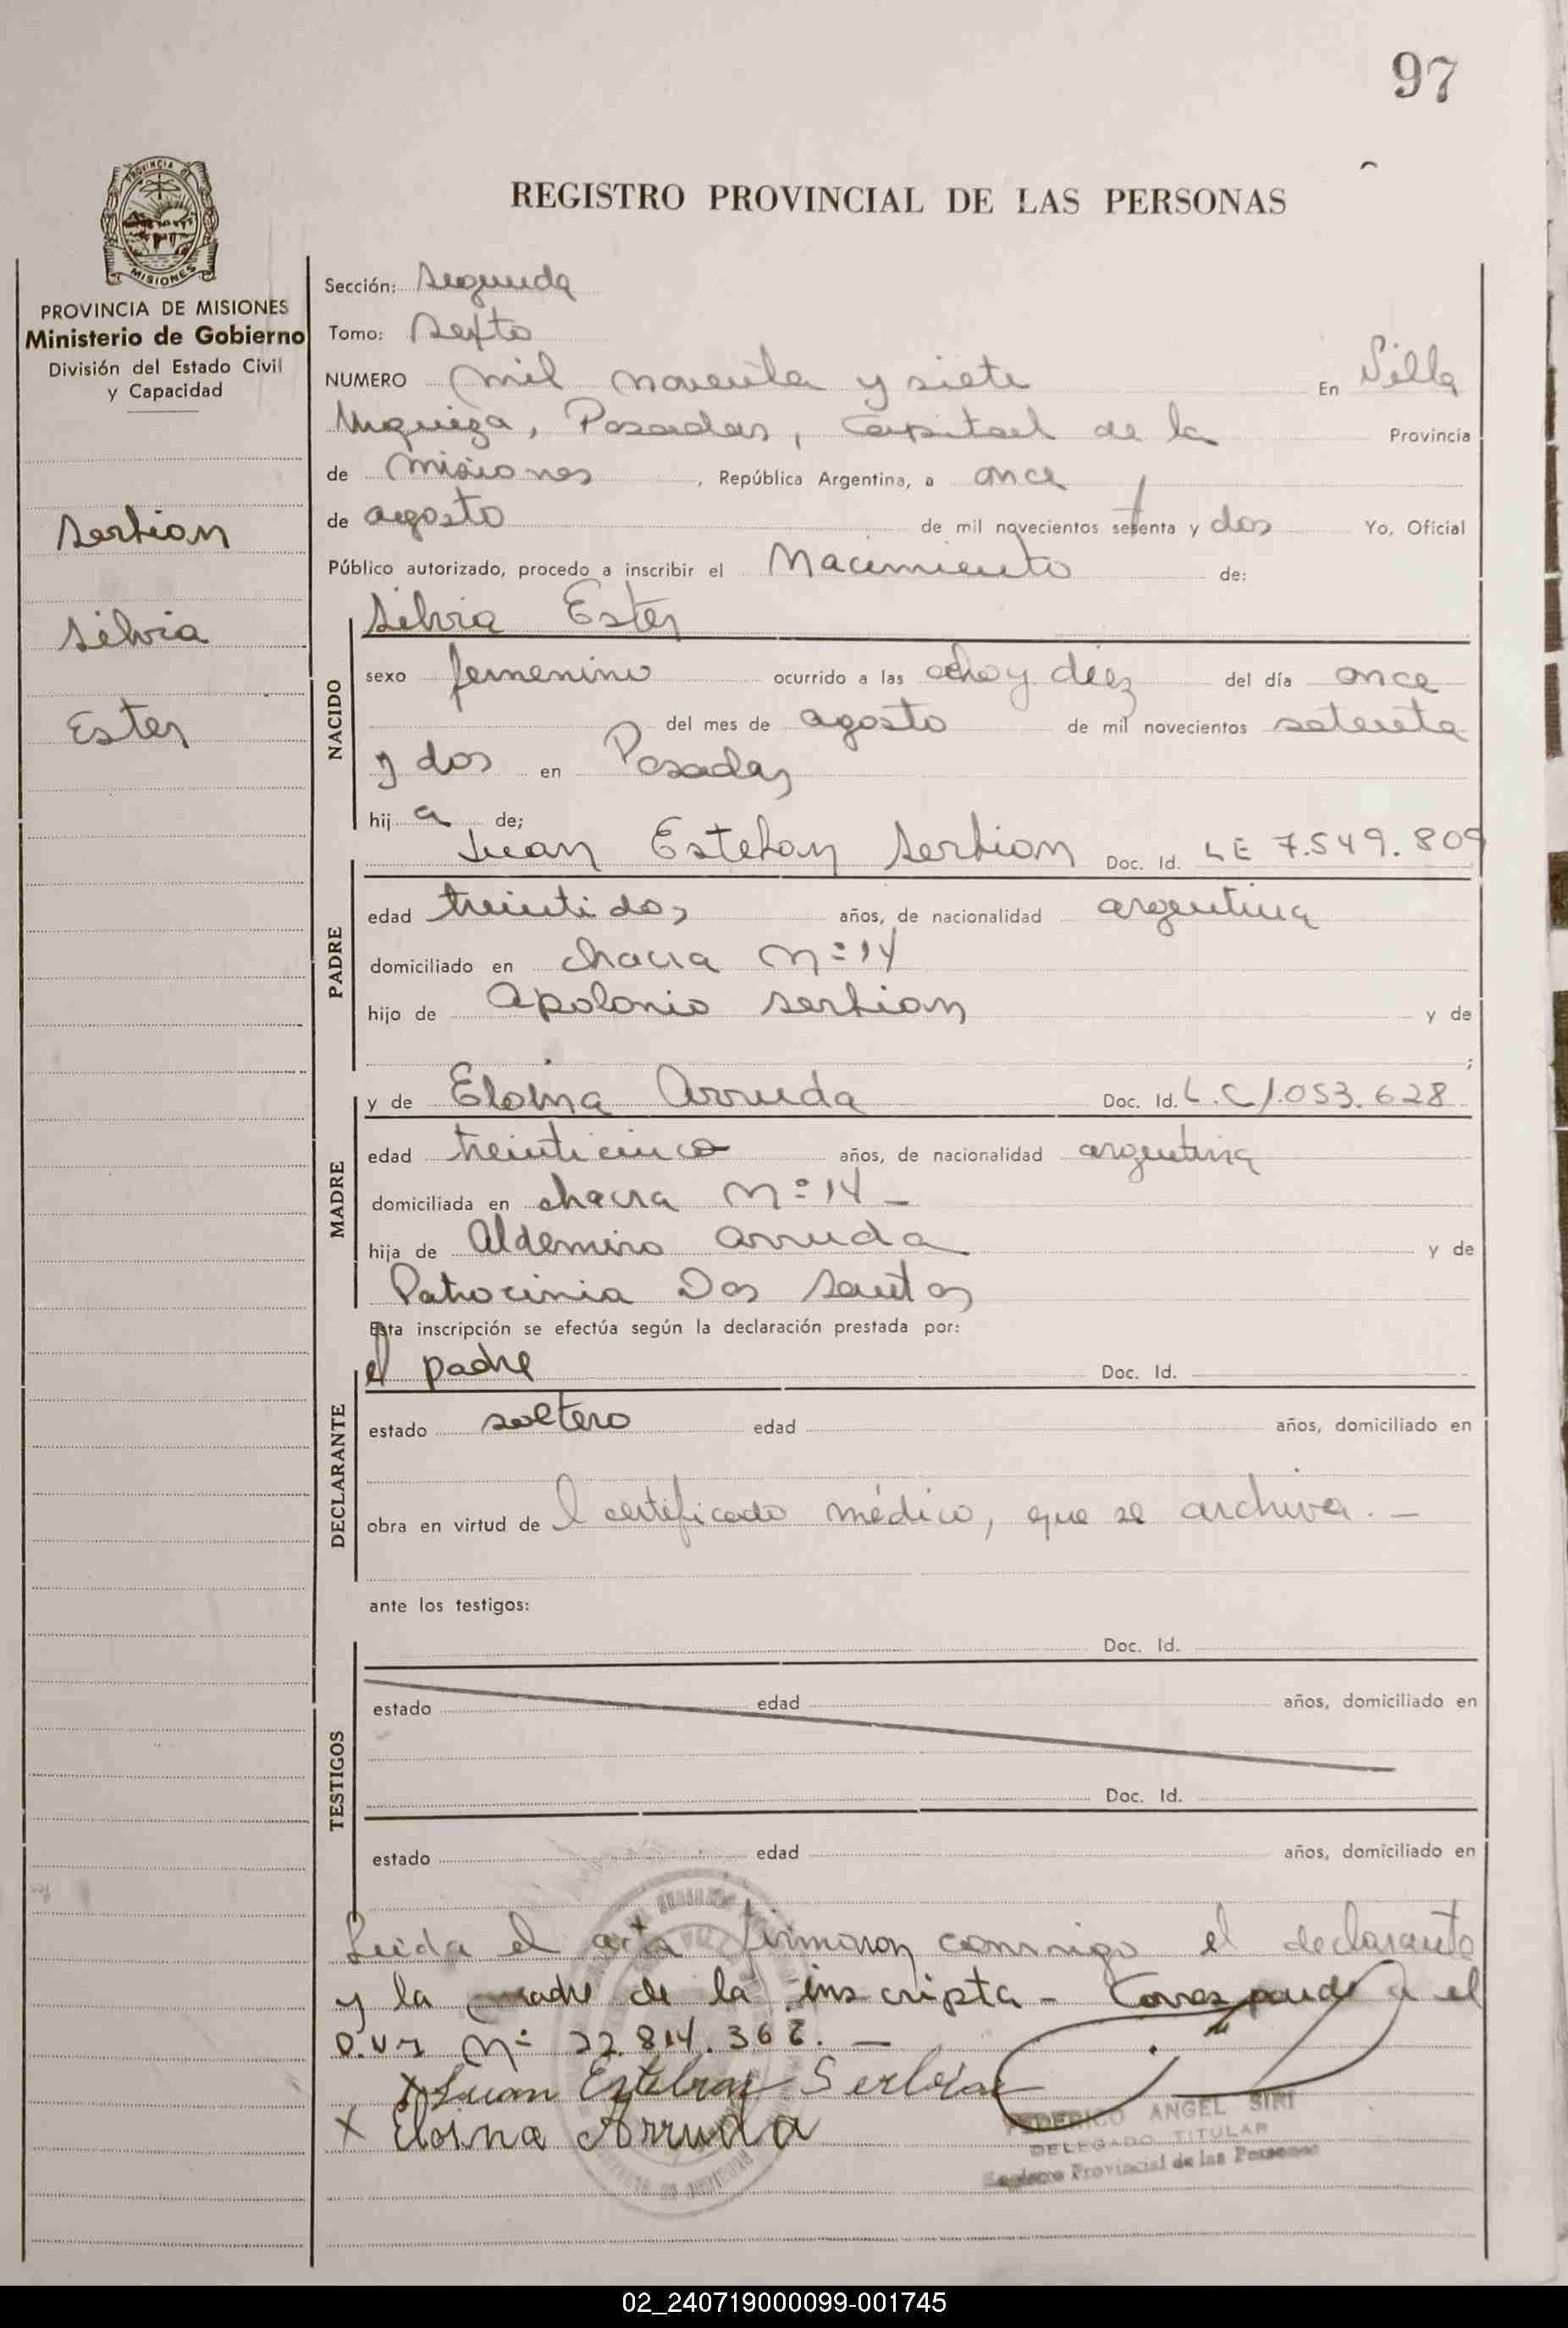 97
PROVINCIA DE
MISIONES
REGISTRO PROVINCIAL DE LAS PERSONAS
PROVINCIA DE MISIONES
Ministerio de Gobierno
División del Estado Civil
y Capacidad
Serbian
Silvia
Ester
Sección: Segunda
Tomo: Sexto
NUMERO mil noventa y siete En Villa
Urquiza, Posadas, Capital de la Provincia
de Misiones, República Argentina, a once
de agosto de mil novecientos setenta y dos Yo, Oficial
Público autorizado, procedo a inscribir el Nacimiento de:
Silvia Ester
NACIDO
sexo femenino ocurrido a las ocho y diez del día once
del mes de agosto de mil novecientos setenta
y dos en Posadas
hij a de;
Juan Esteban Serbian Doc. Id. LE 7.549.809
PADRE
edad treintidos años, de nacionalidad argentina
domiciliado en chacra Nº 14
hijo de Apolonio Serbian y de
;
y de Eloina Arruda Doc. Id. L.C 1.053.628
MADRE
edad treinticinco años, de nacionalidad argentina
domiciliada en chacra Nº 14 -
hija de Aldemiro Arruda y de
Patrocinia Dos Santos
Esta inscripción se efectúa según la declaración prestada por:
el padre Doc. Id.
DECLARANTE
estado soltero edad años, domiciliado en
obra en virtud de l certificado médico, que se archiva. -
ante los testigos:
Doc. Id.
TESTIGOS
estado edad años, domiciliado en
Doc. Id.
estado edad años, domiciliado en
Leida el acta firmaron conmigo el declarante
y la madre de la inscripta - Corresponde a el
D.U.I Nº 22.814.362. -
x Juan Esteban Serbian
x Eloina Arruda
FEDERICO ANGEL SIRI
DELEGADO TITULAR
Registro Provincial de las Personas
02_240719000099-001745